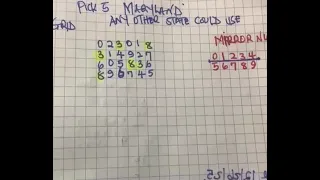 PICK 5 MARYLAND
GRID ANY OTHER STATE COULD USE
0 2 3 0 1 8
3 1 4 9 2 7
6 0 5 8 3 6
8 9 6 7 4 5
MIRROR NU
0 1 2 3 4
5 6 7 8 9